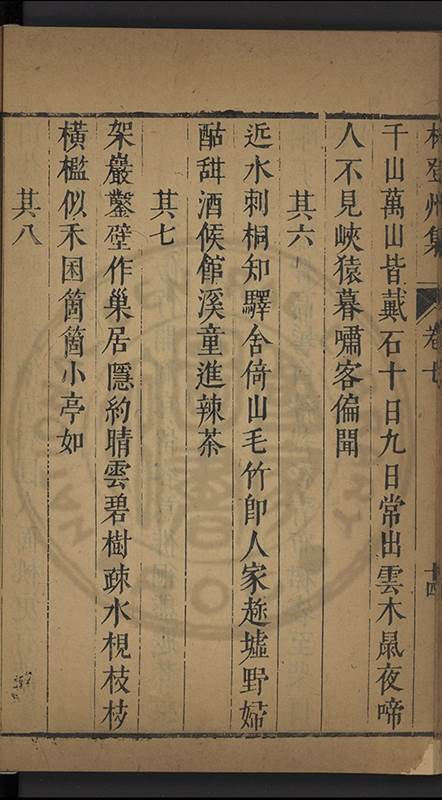 林登州集 卷七 十四
千山萬山皆戴石十日九日常出雲木鼠夜啼
人不見峽猿暮嘯客偏聞
其六
近水刺桐知驛舍倚山毛竹卽人家趂墟野婦
酤甜酒候館溪童進辣茶
其七
架巖鑿壁作巢居隱約晴雲碧樹疎水梘枝枝
橫檻似禾囷箇箇小亭如
其八